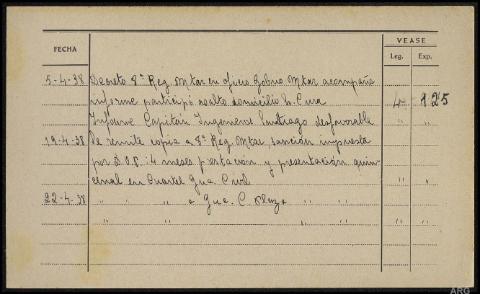 FECHA
VEASE
Leg. Exp.
5-4-38 Decreto 8ª Reg. Mtar en oficio Gobno Mtar acompaña
informe participó asalto domicilio h. Cura 4 125
Informe Capitán Ingenieros Santiago desfavorable " "
19-4-38 Se remite copia a 8ª Reg. Mtar, sanción impuesta
por D.O.P.: 4 meses p
y presentación quin-
cenal en Cuartel Gua. Civil " "
22-4-38 " " " a Gua. C. " " " "
ARG